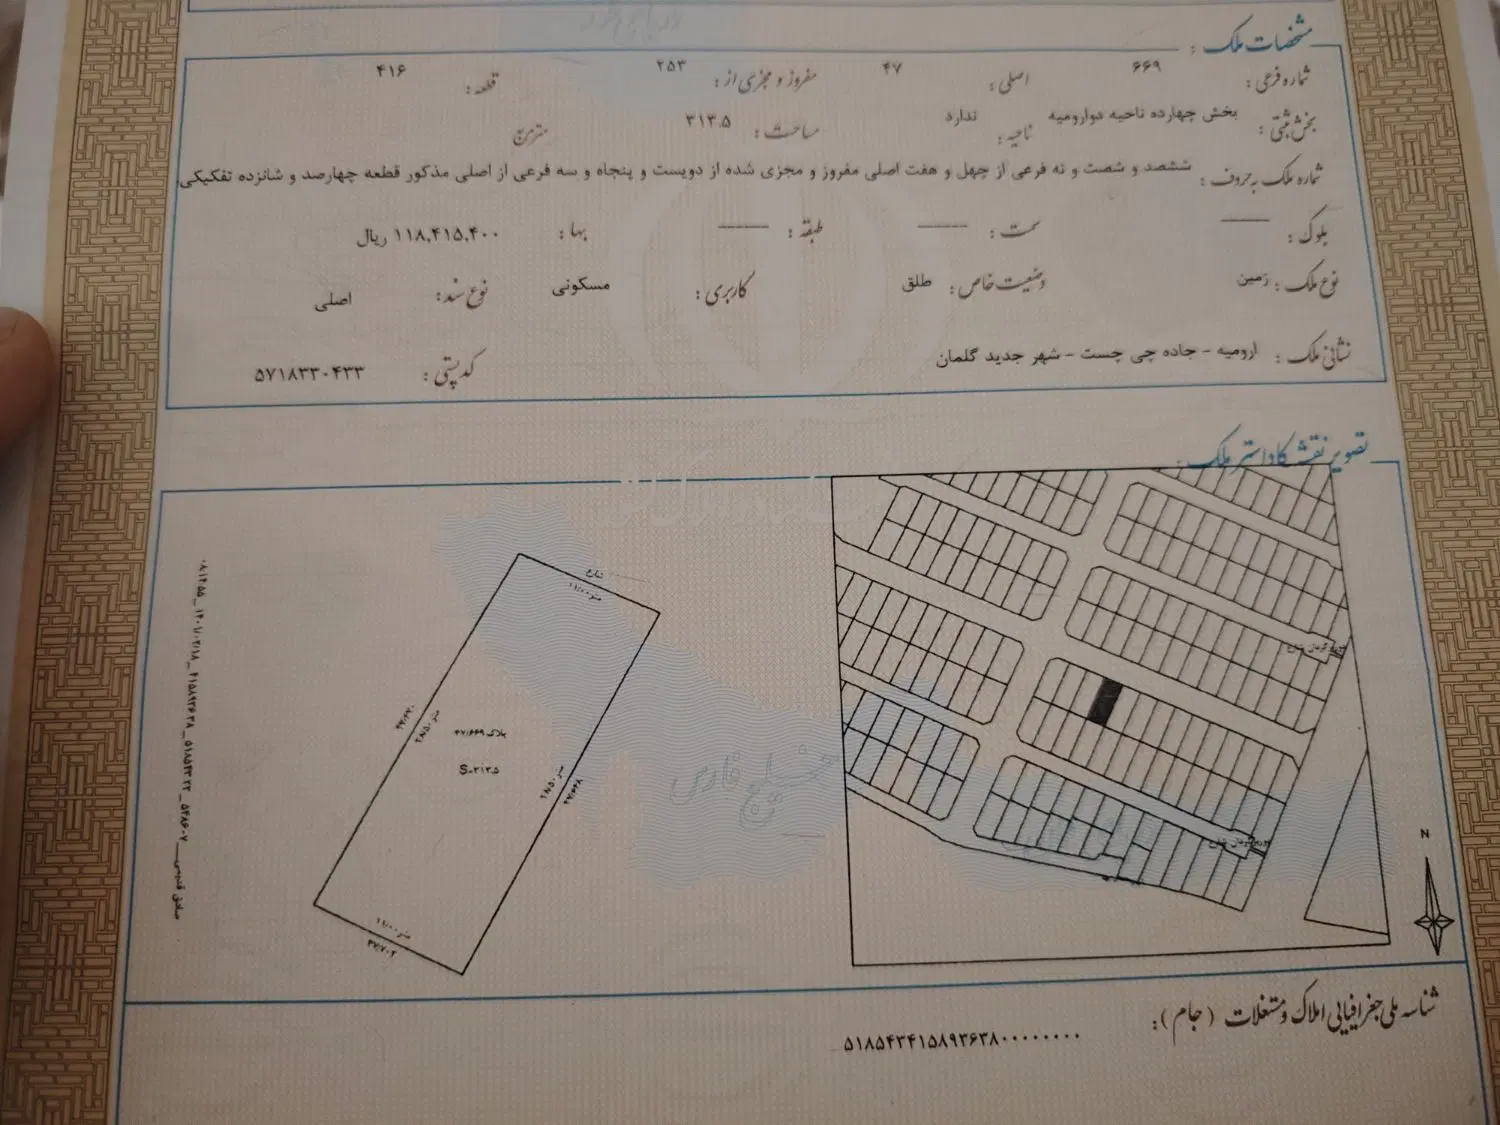 مشخصات ملک :
شماره فرعی : ۶۶۹ اصلی : ۴۷ مفروز و مجزی از : ۲۵۳ قطعه : ۴۱۶
بخش ثبتی : بخش چهارده ناحیه دوارومیه ناحیه : ندارد مساحت : ۳۱۳.۵ مترمربع
شماره ملک به حروف : ششصد و شصت و نه فرعی از چهل و هفت اصلی مفروز و مجزی شده از دویست و پنجاه و سه فرعی از اصلی مذکور قطعه چهارصد و شانزده تفکیکی
بلوک : سمت : طبقه : بها : ۱۱۸,۴۱۵,۴۰۰ ریال
نوع ملک : زمین وضعیت خاص : طلق کاربری : مسکونی نوع سند : اصلی
نشانی ملک : ارومیه - جاده چی چست - شهر جدید گلمان
کد پستی : ۵۷۱۸۳۳۰۴۳۳
تصویر نقشه کاداستر ملک :
شارع
۱۱/۰۰ متر
۲۸/۵۰ متر
پلاک ۴۷/۶۶۹
S=۳۱۳.۵
۲۸/۵۰ متر
۴۷/۶۶۸
۱۱/۰۰ متر
۴۷/۷۰۲
خلیج فارس
N
شناسه ملی جغرافیایی املاک و مستغلات (جام) :
۵۱۸۵۴۳۴۱۵۸۹۳۶۳۸۰۰۰۰۰۰۰۰۰